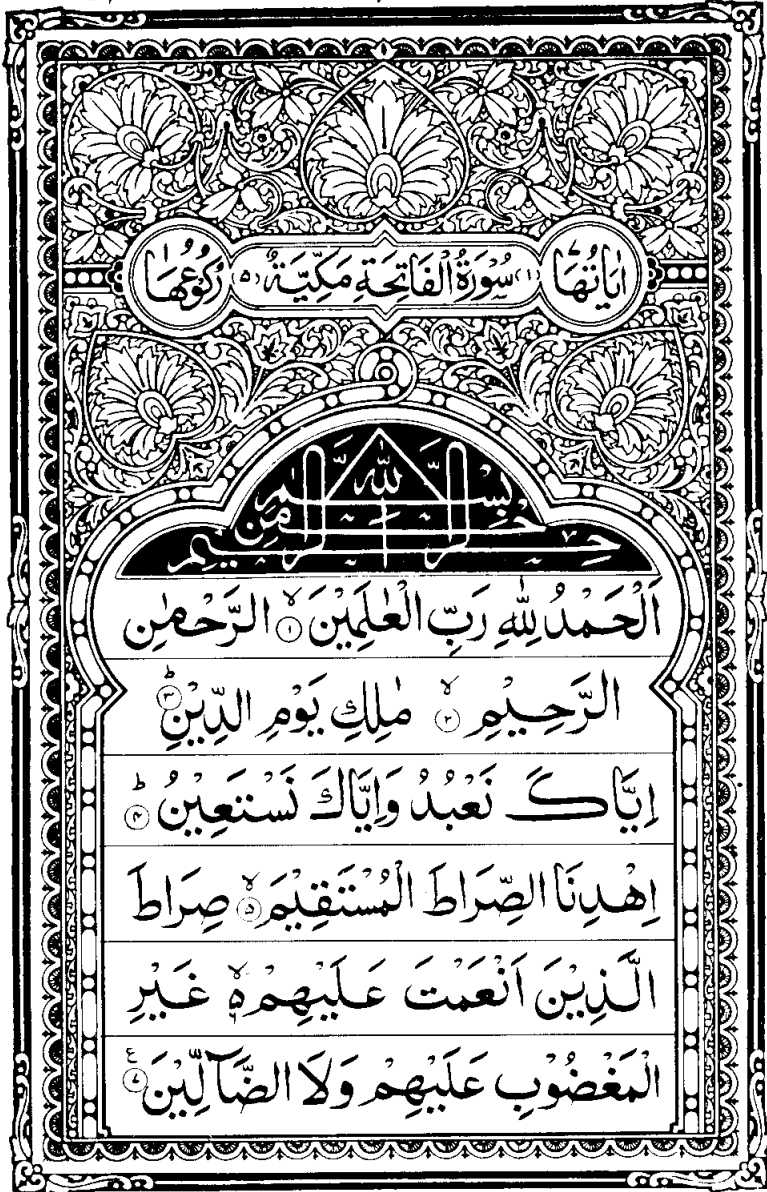 اٰيَاتُهَا ٧ (١) سُوْرَةُ الْفَاتِحَةِ مَكِّيَّةٌ (٥) رُكُوْعُهَا ١
بِسْمِ اللّٰهِ الرَّحْمٰنِ الرَّحِيْمِ
اَلْحَمْدُ لِلّٰهِ رَبِّ الْعٰلَمِيْنَ ۙ ١ الرَّحْمٰنِ
الرَّحِيْمِ ۙ ٢ مٰلِكِ يَوْمِ الدِّيْنِ ؕ ٣
اِيَّاكَ نَعْبُدُ وَاِيَّاكَ نَسْتَعِيْنُ ؕ ۴
اِهْدِنَا الصِّرَاطَ الْمُسْتَقِيْمَ ۙ ۵ صِرَاطَ
الَّذِيْنَ اَنْعَمْتَ عَلَيْهِمْ ۙ۬ غَيْرِ
الْمَغْضُوْبِ عَلَيْهِمْ وَلَا الضَّآلِّيْنَ ٧ ع